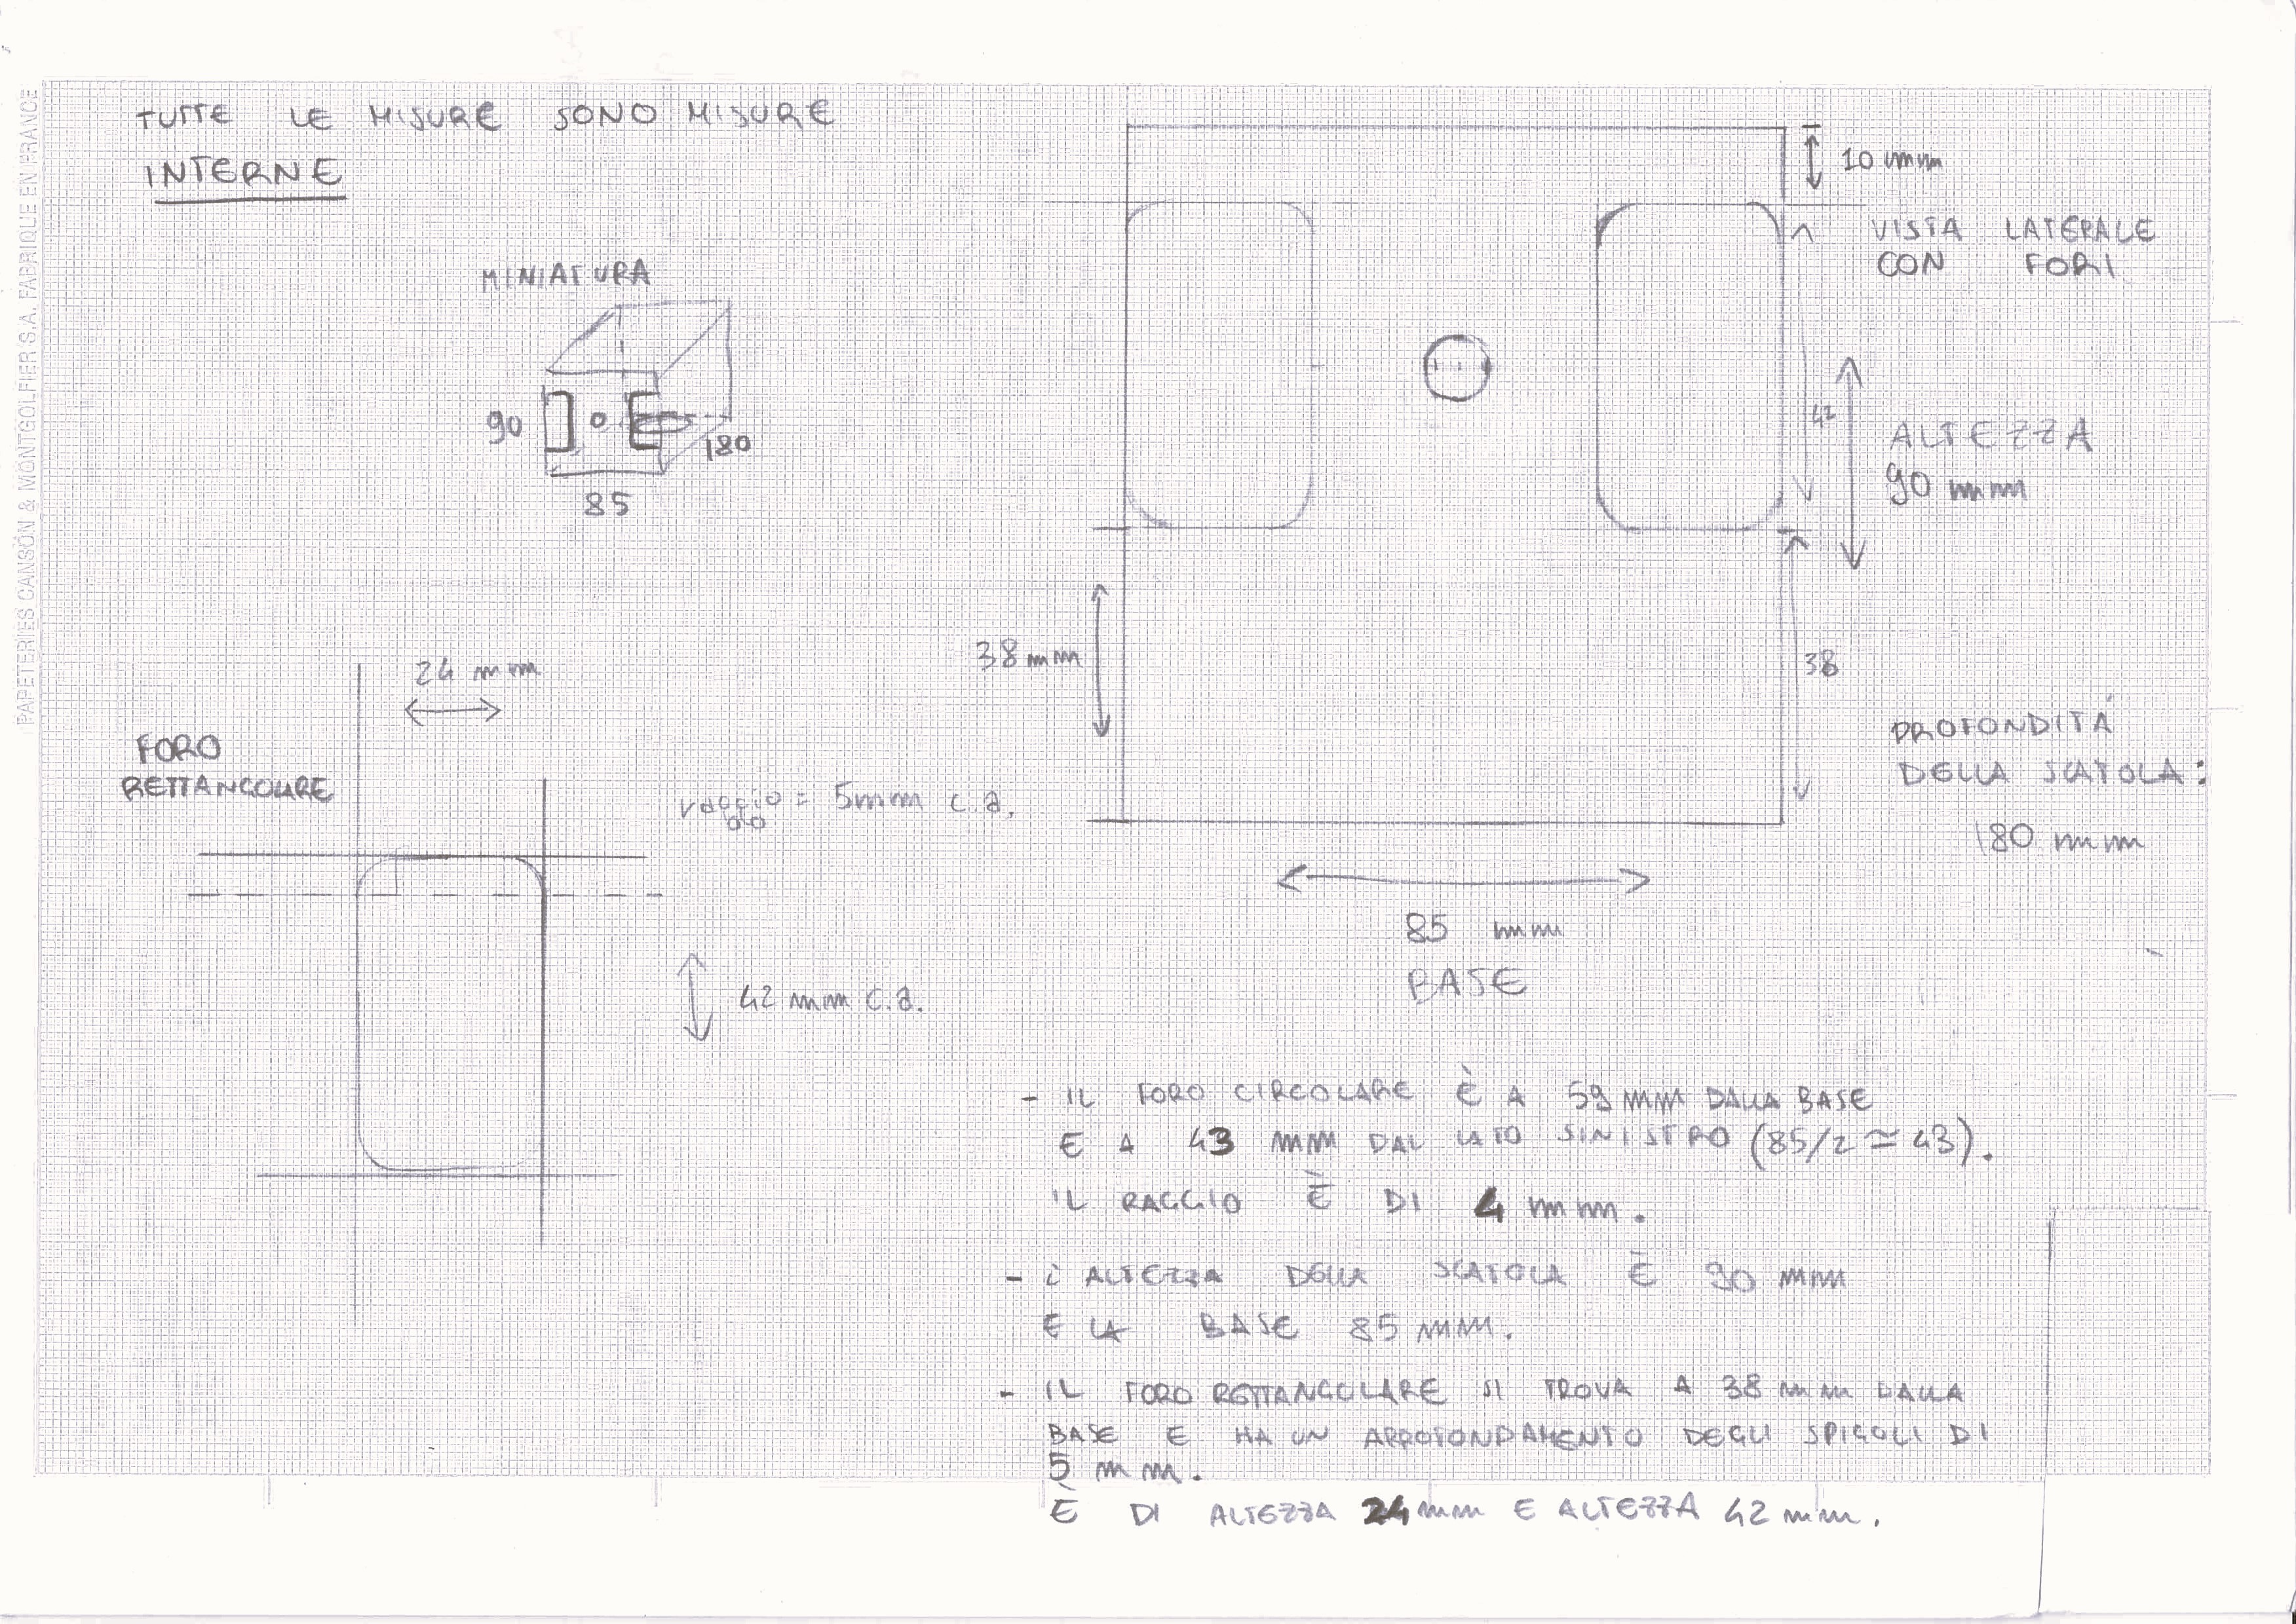 PAPETERIES CANSON & MONTGOLFIER S.A. FABRIQUE EN FRANCE
TUTTE LE MISURE SONO MISURE
INTERNE
MINIATURA
90
180
85
10 mm
VISTA LATERALE
CON FORI
42
ALTEZZA
90 mm
38 mm
38
PROFONDITÁ
DELLA SCATOLA:
180 mm
85 mm
BASE
24 mm
FORO
RETTANGOLARE
raggio = 5mm c.a.
42 mm c.a.
- IL FORO CIRCOLARE È A 59 MM DALLA BASE
E A 43 MM DAL LATO SINISTRO (85/2 ≃ 43).
IL RAGGIO È DI 4 mm.
- L'ALTEZZA DELLA SCATOLA È 90 MM
E LA BASE 85 MM.
- IL FORO RETTANGOLARE SI TROVA A 38 mm DALLA
BASE E HA UN APPROFONDAMENTO DEGLI SPIGOLI DI
5 mm.
È DI ALTEZZA 24 mm E ALTEZZA 42 mm.